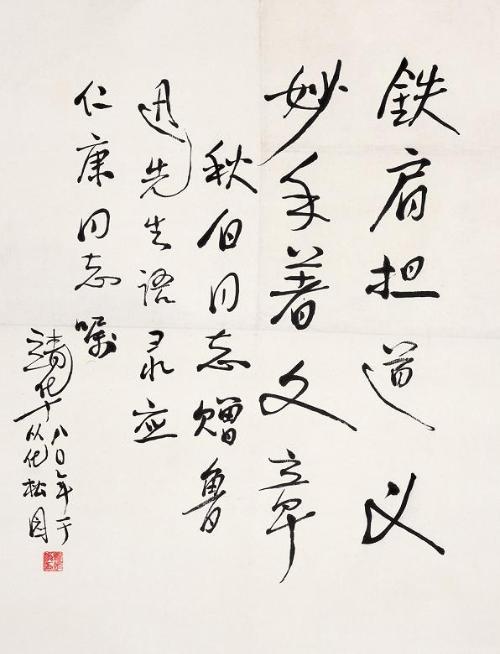 铁肩担道义
妙手著文章
秋白同志赠鲁
迅先生语录应
仁康同志嘱
靖华
八〇年于
从化松园